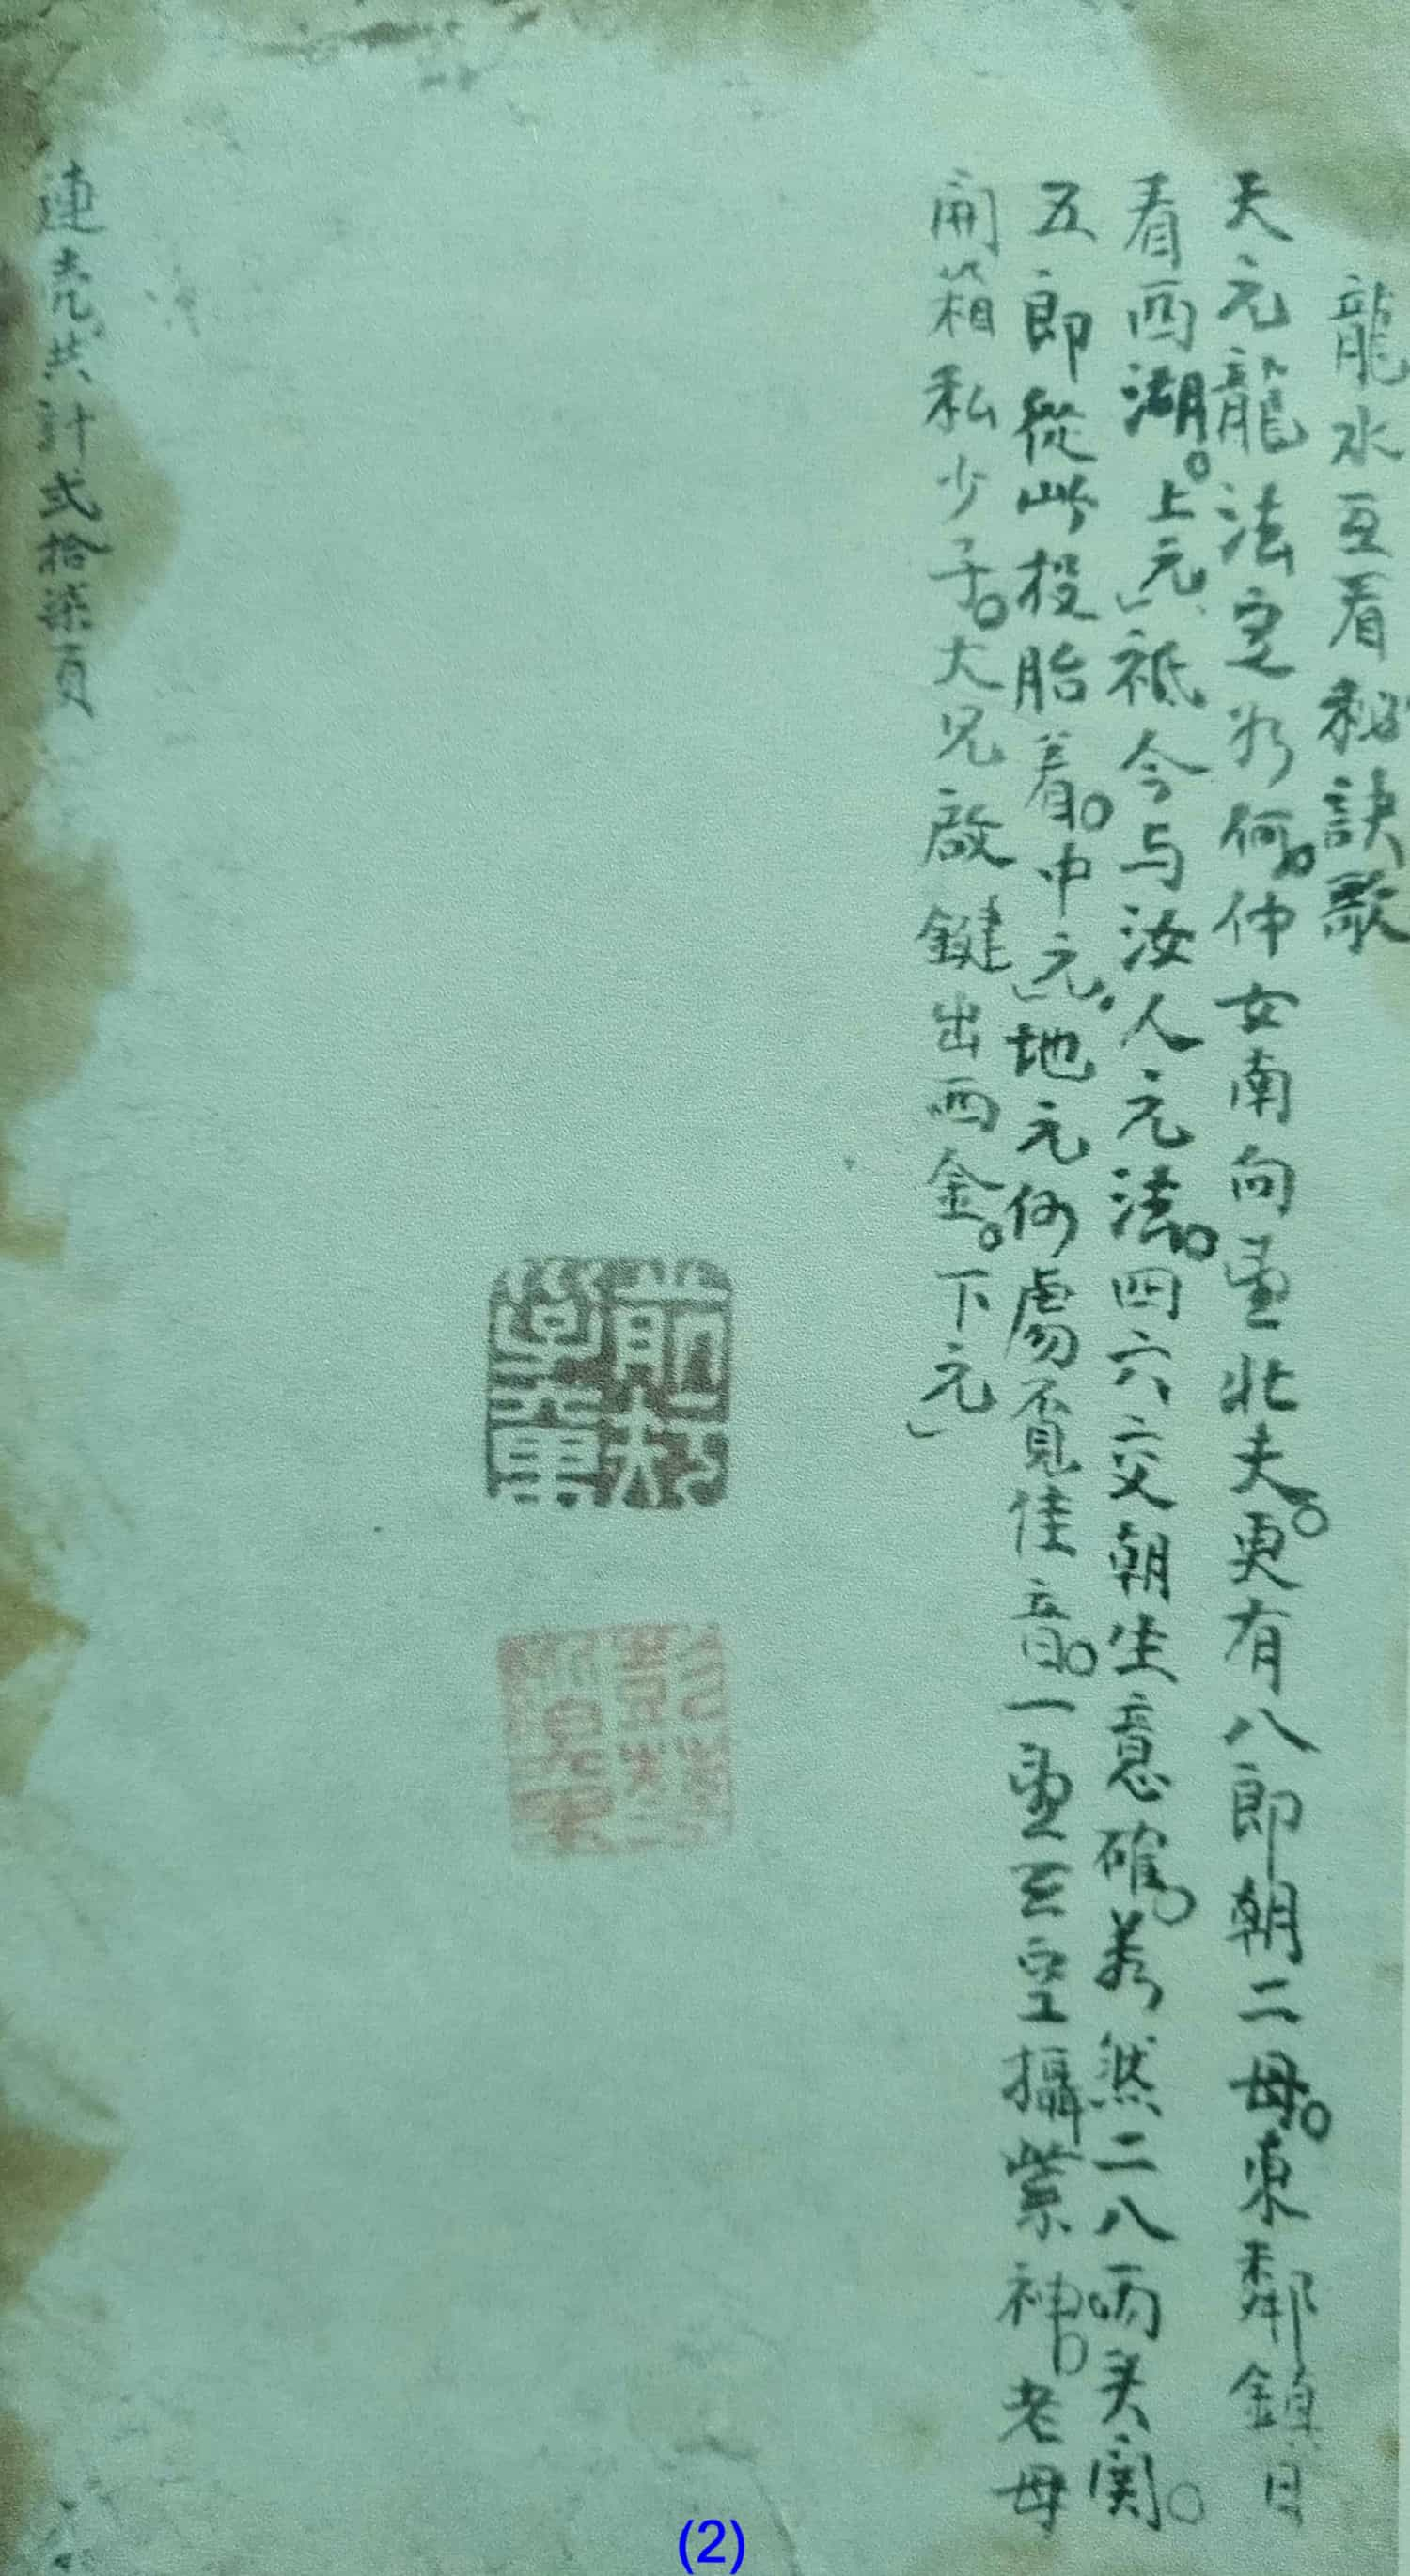 龍水互看秘訣歌
天元龍法定如何。仲女南向重北夫。更有八郎朝二母。東鄰鎮日
看西湖。上元」祗今与汝人元法。四六交朝生意確。若然二八兩关関。
五郎從此投胎着。中元」地元何處覓佳音。一重三空攝紫神。老母
開箱私少子。大兄啟鍵出西金。下元」
連売共計弍拾柒頁
前村
(2)